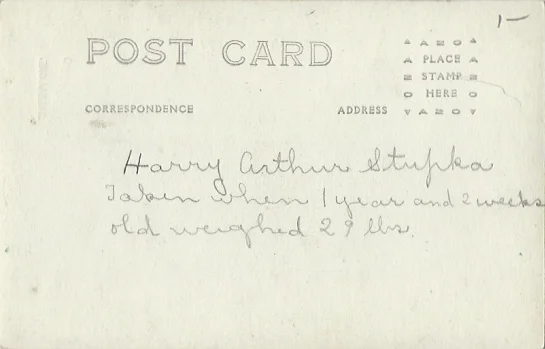 1-
POST CARD
CORRESPONDENCE
ADDRESS
AZO
PLACE
STAMP
HERE
AZO
Harry Arthur Stupka
Taken when 1 year and 2 weeks
old weighed 29 lbs.